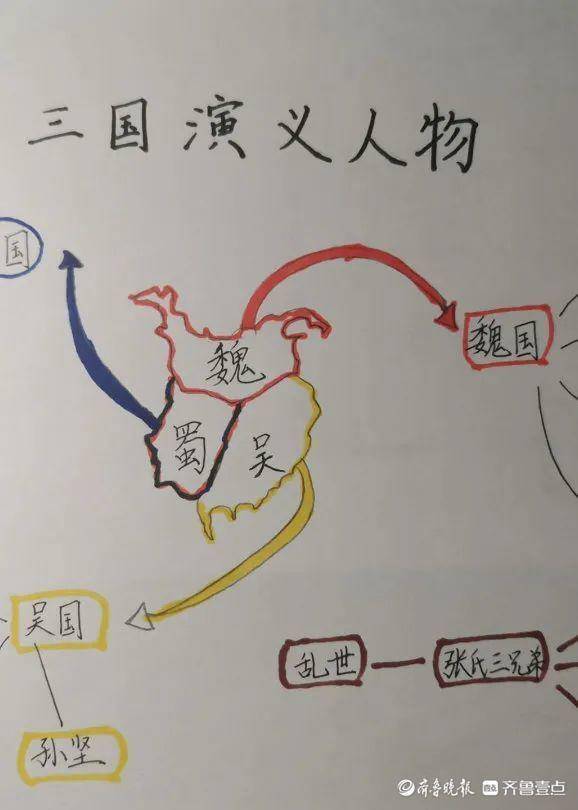 三国演义人物
国
魏
魏国
蜀
吴
吴国
乱世
张氏三兄弟
孙坚
齐鲁晚报
齐鲁壹点